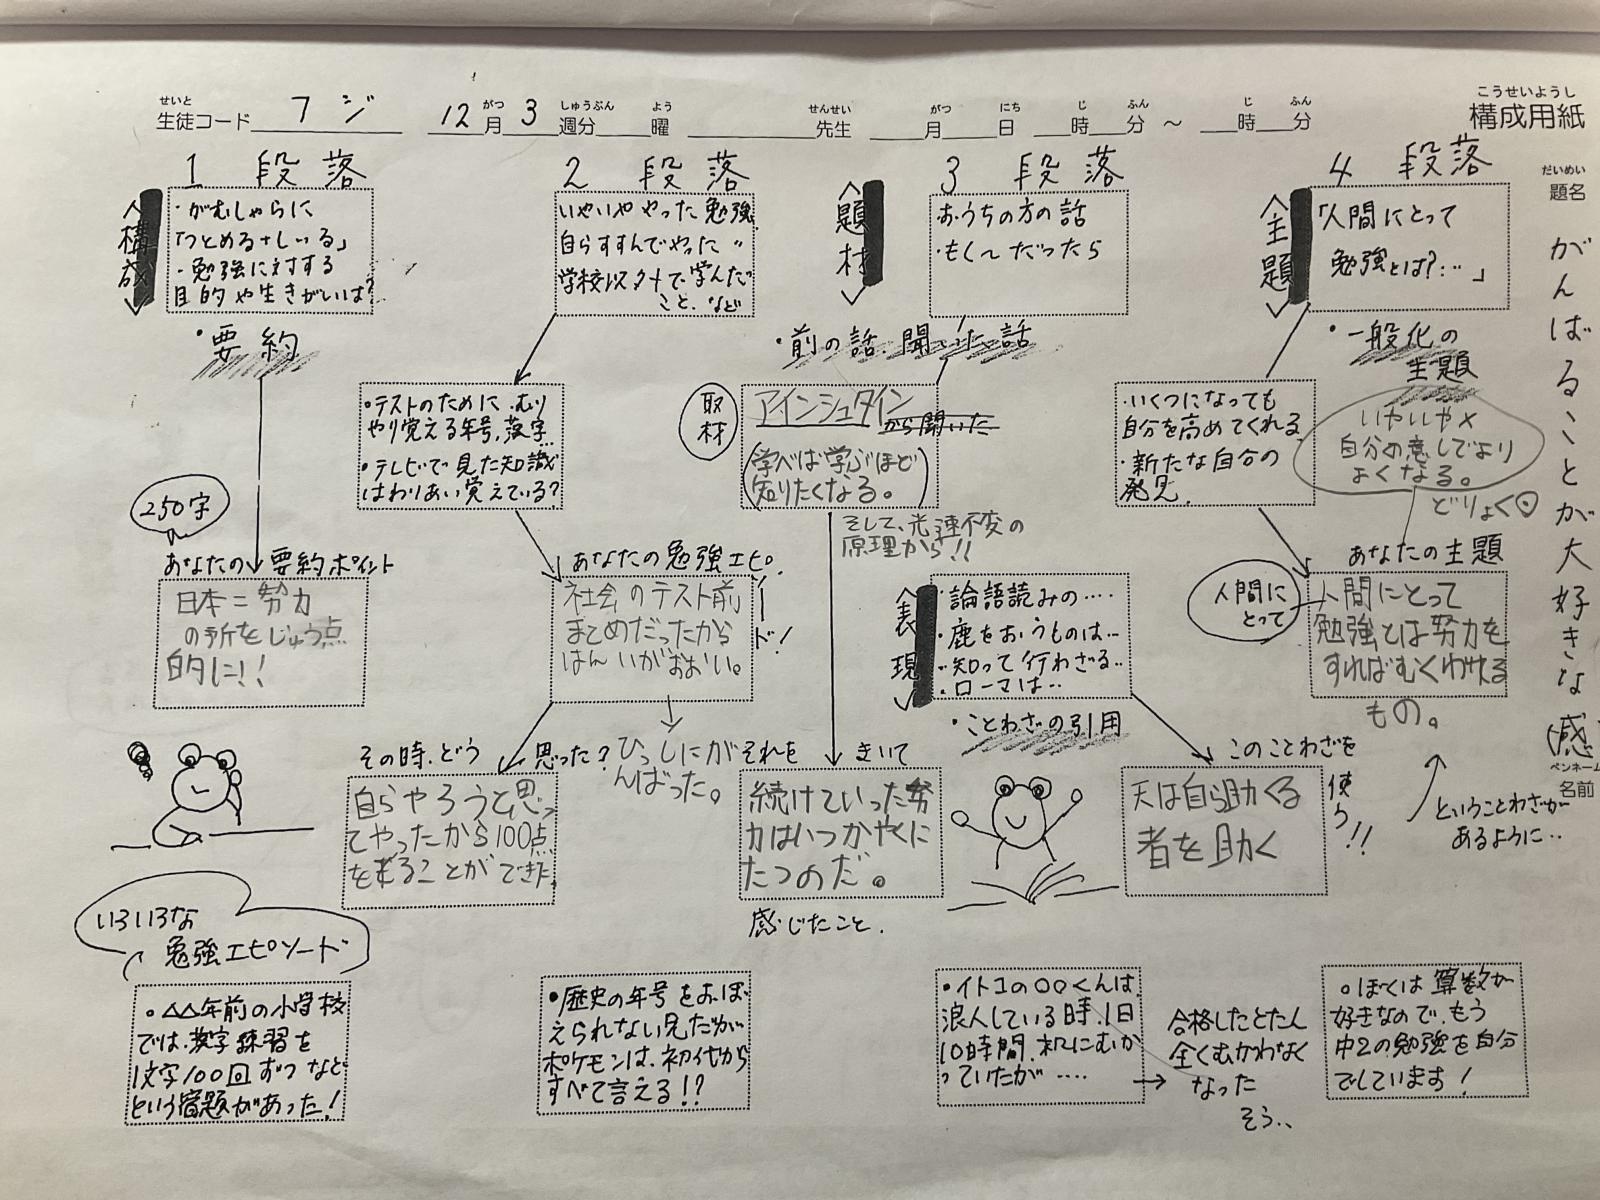 こうせいようし
構成用紙
せいと
生徒コード フジ
12 がつ 月 3 しゅうぶん 週分 よう 曜
せんせい
先生
がつ 月 にち 日 じ 時 ふん 分 ～ じ 時 ふん 分
だいめい
題名
がんばることが大好きな
(感
ペンネーム
名前
1 段落
<構成>
・がむしゃらに
「つとめる+しいる」
・勉強に対する
目的や生きがいは?
・要約
250字
あなたの要約ポイント
日本=努力
の所をじゅう点
的に!!
2 段落
いやいややった勉強
自らすすんでやった 〃
学校以外で、学んだ
こと、など
・テストのために、むり
やり覚える年号、漢字
・テレビで見た知識
はわりあい覚えている?
あなたの勉強エピソード!
社会のテスト前
まとめだったから
はんいがおおい。
ひっしにが
んばった。
その時、どう思った?
自らやろうと思っ
てやったから100点
をとることができた。
3 段落
<題材>
おうちの方の話
・もし〜だったら
・前の話、聞いた話
取材
アインシュタイン
から聞いた
(学べば学ぶほど
知りたくなる。)
そして、光速不変の
原理から!!
それをきいて
続けていった努
力はいつかやくに
たつのだ。
感じたこと.
<表現>
・論語読みの‥‥
・鹿をおうものは‥
・知って行わざる‥
・ローマは‥
・ことわざの引用
このことわざを使う!!
天は自ら助くる
者を助く
4 段落
<主題>
「人間にとって
勉強とは?‥‥」
・一般化の
主題
・いくつになっても
自分を高めてくれる
・新たな自分の
発見.
いやいや×
自分の意しでより
よくなる。
どりょく
あなたの主題
人間に
とって
人間にとって
勉強とは努力を
すればむくわれる
もの。
ということわざが
あるように‥
いろいろな
勉強エピソード
○△△年前の小学校
では、漢字練習を
1文字100回ずつなど
という宿題があった!
・歴史の年号をおぼ
えられない兄だが
ポケモンは、初代から
すべて言える!?
・イトコの○○くんは、
浪人している時、1日
10時間、机にむか
っていたが‥‥
合格したとたん
全くむかわなく
なった
そう‥
○ぼくは算数が
好きなので、もう
中2の勉強を自分
でしています!